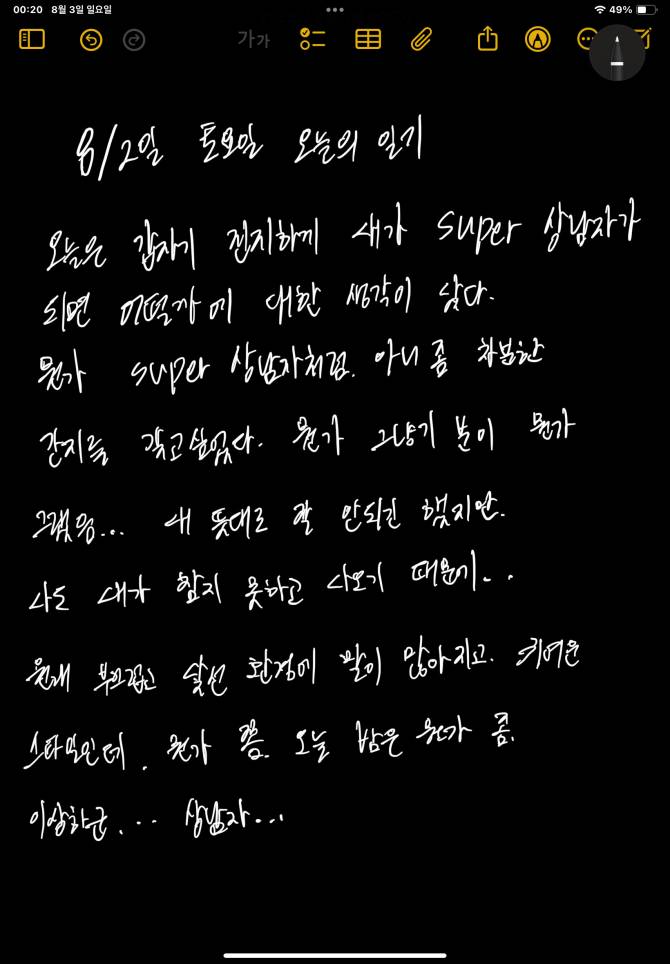 00:20 8월 3일 일요일
49%
가가
8/2일 토요일 오늘의 일기
오늘은 갑자기 진지하게 내가 super 상남자가
되면 어떨까에 대한 생각이 났다.
뭔가 super 상남자처럼. 아니 좀 차분한
간지를 갖고싶었다. 뭔가 그냥 기분이 뭔가
그랬음... 내 뜻대로 잘 안되긴 했지만.
나도 내가 참지 못하고 나오기 때문에..
원래 부끄럽고 낯선 환경에 말이 많아지고. 귀여운
스타일인데. 뭔가 쫌. 오늘 밤은 뭔가 좀.
이상하군. ... 상남자...